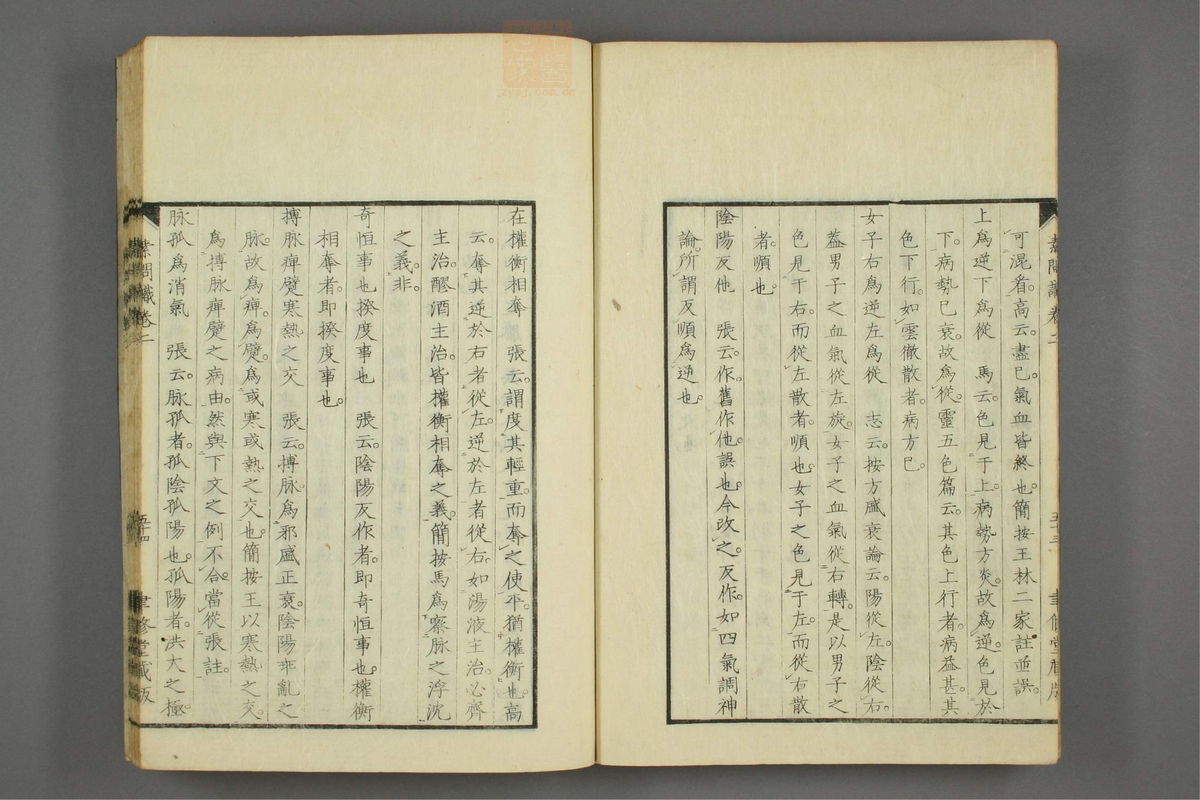 素問識卷二
五十三
聿修堂藏版
可混看。高云。盡已。氣血皆終也。簡按王林二家註並誤。
上為逆下為從　馬云。色見于上。病勢方炎。故為逆。色見於
下。病勢已衰。故為從。靈五色篇云。其色上行者。病益甚。其
色下行。如雲徹散者。病方已。
女子右為逆左為從　志云。按方盛衰論云。陽從左。陰從右。
蓋男子之血氣從左旋。女子之血氣從右轉。是以男子之
色見于右。而從左散者。順也。女子之色見于左。而從右散
者。順也。
陰陽反他　張云。作。舊作他。誤也。今改之。反作。如四氣調神
論。所謂反順為逆也。
在權衡相奪　張云。謂度其輕重。而奪之使平。猶權衡也。高
云。奪其逆於右者從左。逆於左者從右。如湯液主治。必齊
主治。醪酒主治。皆權衡相奪之義。簡按馬為察脉之浮沈
之義。非。
奇恒事也揆度事也　張云。陰陽反作者。即奇恒事也。權衡
相奪者。即揆度事也。
搏脉痺躄寒熱之交　張云。搏脉。為邪盛正衰。陰陽乖亂之
脉。故為痺。為躄。為或寒或熱之交也。簡按王以寒熱之交。
為搏脉痺躄之病由。然與下文之例不合。當從張註。
脉孤為消氣　張云。脉孤者。孤陰孤陽也。孤陽者。洪大之極。
素問識卷二
五十四
聿修堂藏版